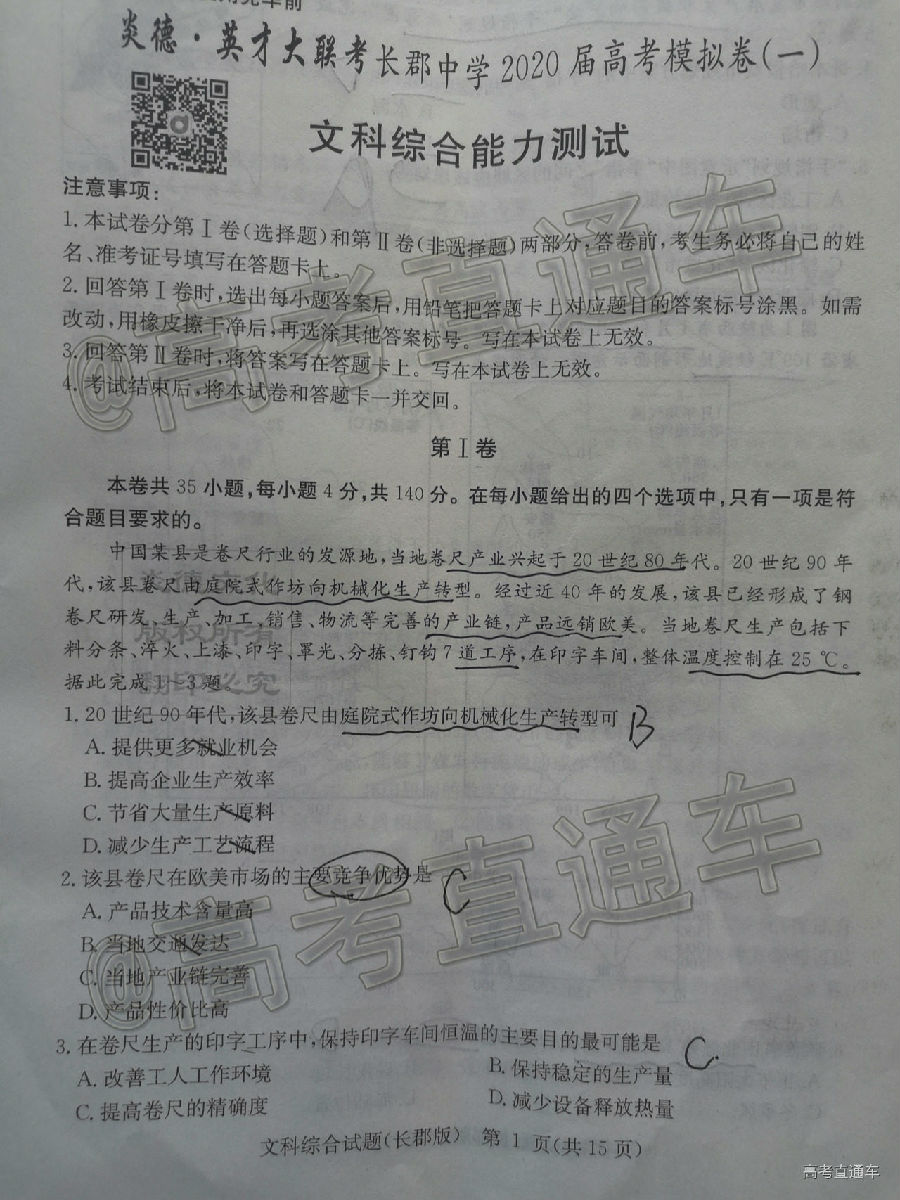 炎德·英才大联考长郡中学2020届高考模拟卷(一)
文科综合能力测试
注意事项:
1.本试卷分第Ⅰ卷(选择题)和第Ⅱ卷(非选择题)两部分,答卷前,考生务必将自己的姓
名、准考证号填写在答题卡上。
2.回答第Ⅰ卷时,选出每小题答案后,用铅笔把答题卡上对应题目的答案标号涂黑。如需
改动,用橡皮擦干净后,再选涂其他答案标号。写在本试卷上无效。
3.回答第Ⅱ卷时,将答案写在答题卡上。写在本试卷上无效。
4.考试结束后,将本试卷和答题卡一并交回。
第Ⅰ卷
本卷共35小题,每小题4分,共140分。在每小题给出的四个选项中,只有一项是符
合题目要求的。
中国某县是卷尺行业的发源地,当地卷尺产业兴起于20世纪80年代。20世纪90年
代,该县卷尺由庭院式作坊向机械化生产转型。经过近40年的发展,该县已经形成了钢
卷尺研发、生产、加工,销售、物流等完善的产业链,产品远销欧美。当地卷尺生产包括下
料分条、淬火、上漆、印字、罩光、分拣、钉钩7道工序,在印字车间,整体温度控制在25℃。
据此完成1~3题。
1.20世纪90年代,该县卷尺由庭院式作坊向机械化生产转型可 B
A.提供更多就业机会
B.提高企业生产效率
C.节省大量生产原料
D.减少生产工艺流程
2.该县卷尺在欧美市场的主要竞争优势是 C
A.产品技术含量高
B.当地交通发达
C.当地产业链完善
D.产品性价比高
3.在卷尺生产的印字工序中,保持印字车间恒温的主要目的最可能是 C.
A.改善工人工作环境 B.保持稳定的生产量
C.提高卷尺的精确度 D.减少设备释放热量
文科综合试题(长郡版) 第1页(共15页)
版权所有
翻印必究
@高考直通车
@高考直通车
高考直通车